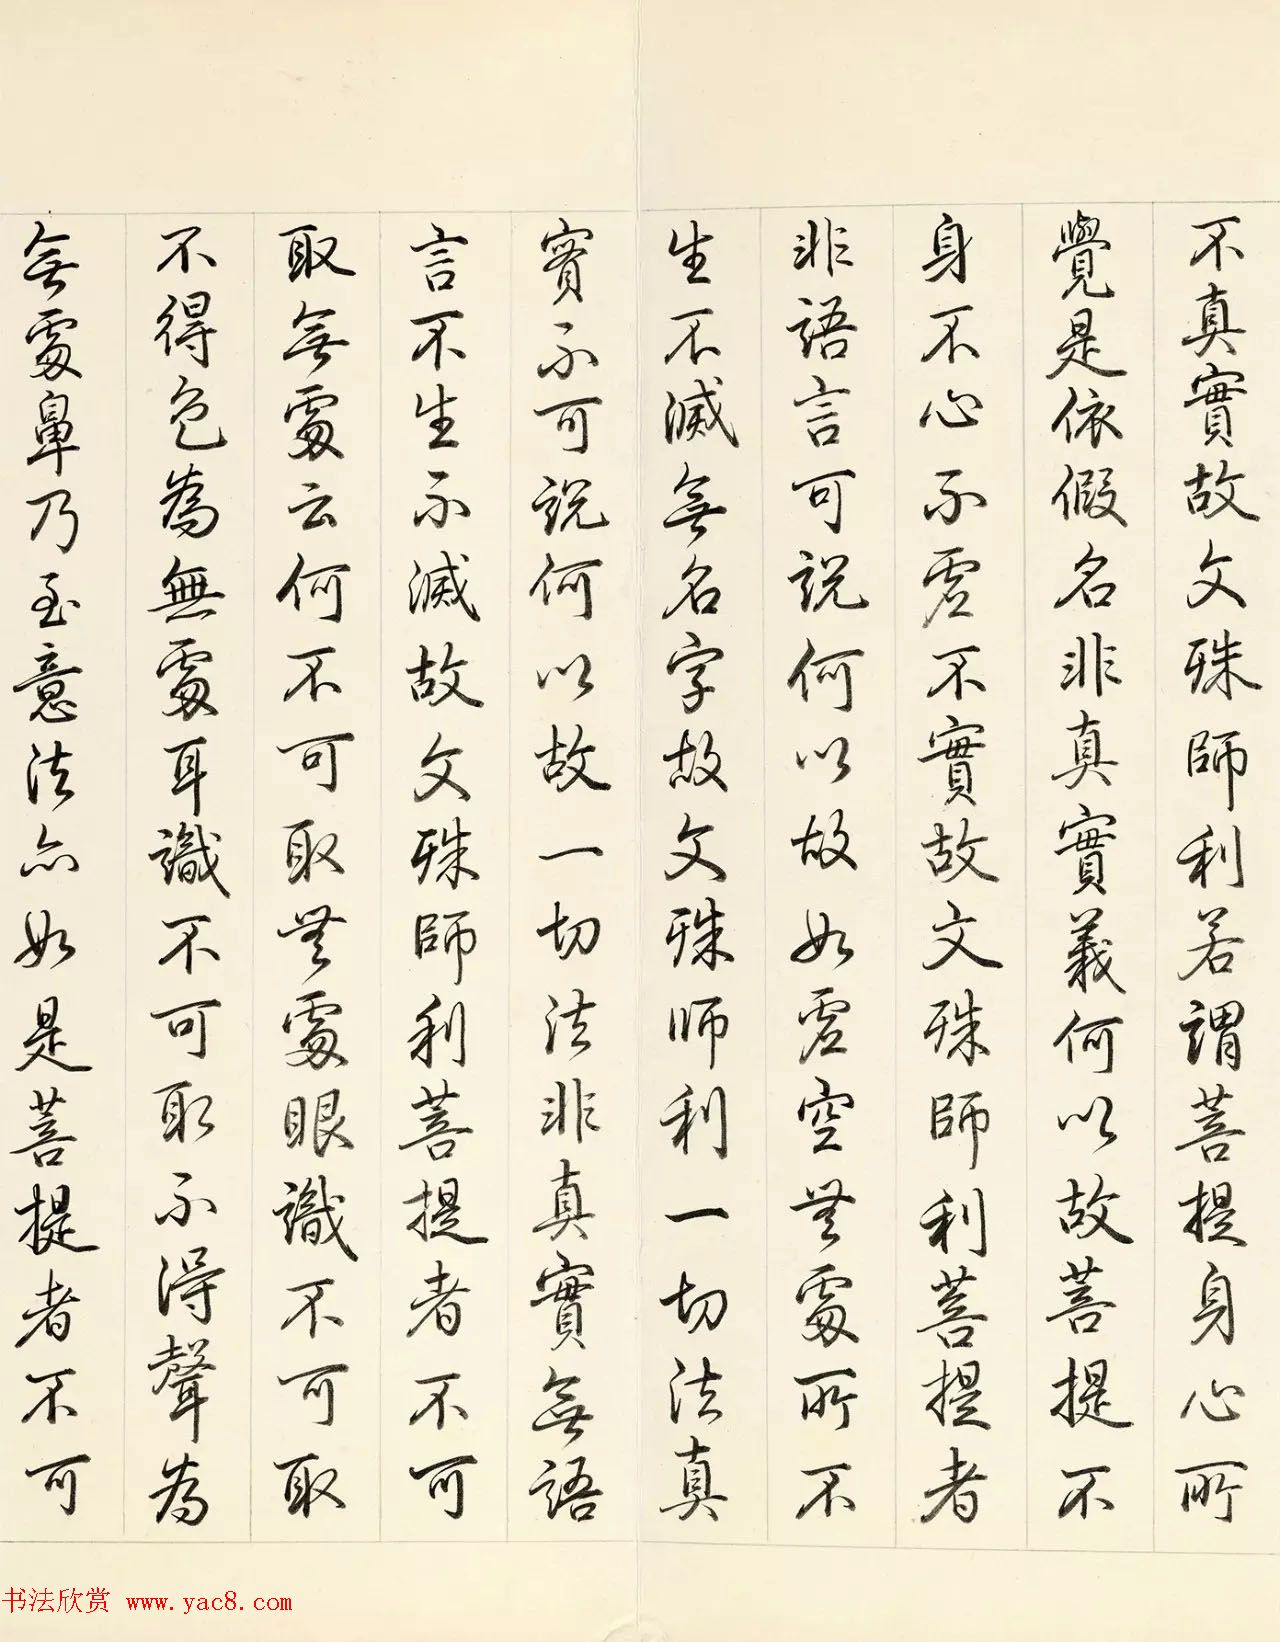 不真實故文殊師利若謂菩提身心所
覺是依假名非真實義何以故菩提不
身不心不虛不實故文殊師利菩提者
非語言可說何以故如虛空無處所不
生不滅無名字故文殊师利一切法真
實不可說何以故一切法非真實無語
言不生不滅故文殊師利菩提者不可
取無處云何不可取無處眼識不可取
不得色為無處耳識不可取不得聲為
無處鼻乃至意法亦如是菩提者不可
书法欣赏 www.yac8.com